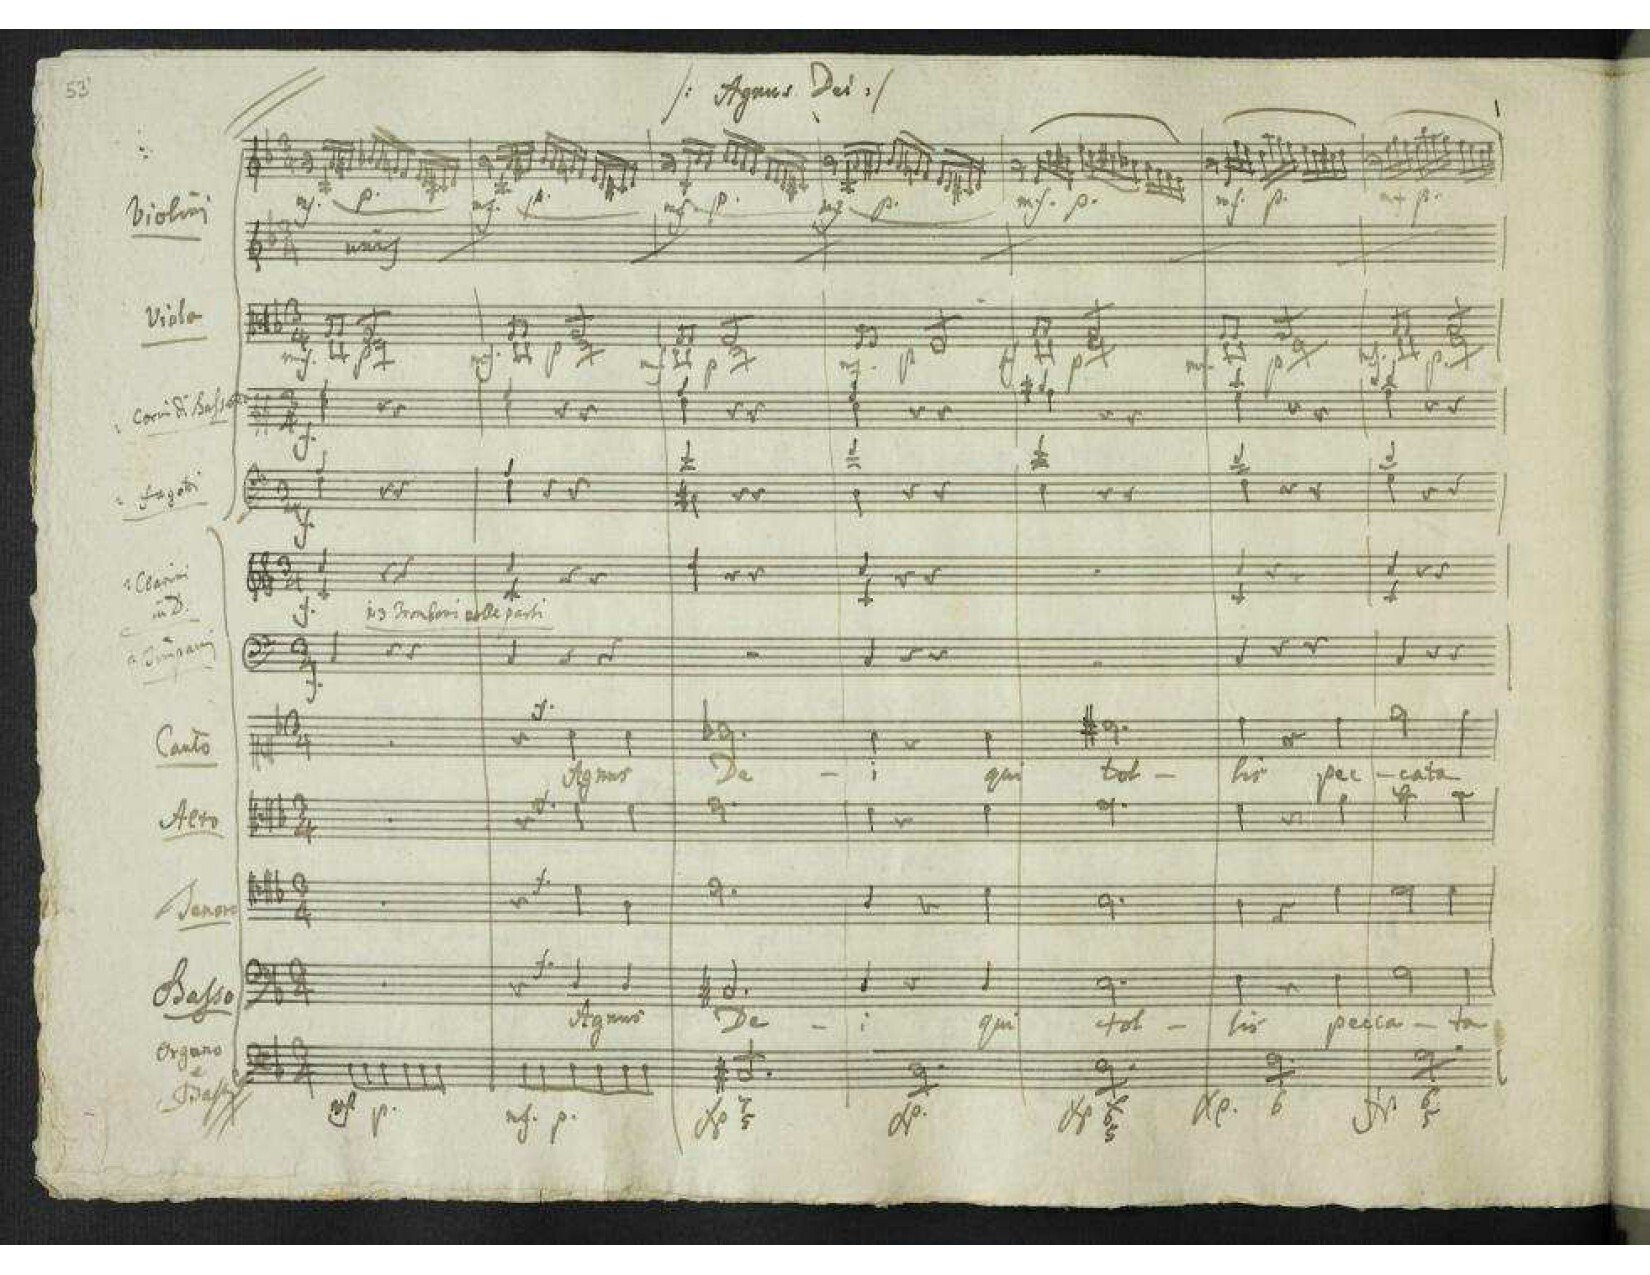 53
/: Agnus Dei :/
Violini
mf. p. mf. p. mf. p. mf. p. mf. p. mf. p. mf. p.
unis
Viola
mf. p mf. p mf. p mf. p mf. p mf. p mf. p
2 Corni di Bassetto
f.
2 Fagotti
f.
2 Clarini
in D.
f.
i 3 Tromboni colle parti
2 Timpani
f.
Canto
f.
Agnus De - i qui tol - lis pec - cata
Alto
f.
Tenore
f.
Basso
f.
Agnus De - i qui tol - lis pecca - ta
Organo
e
Bassi
mf. p. mf. p. fp 7 5 fp. fp 6 5 fp. 6 fp. 6 5